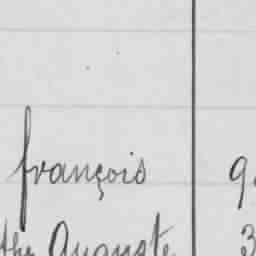 françois 9
the Auguste 3